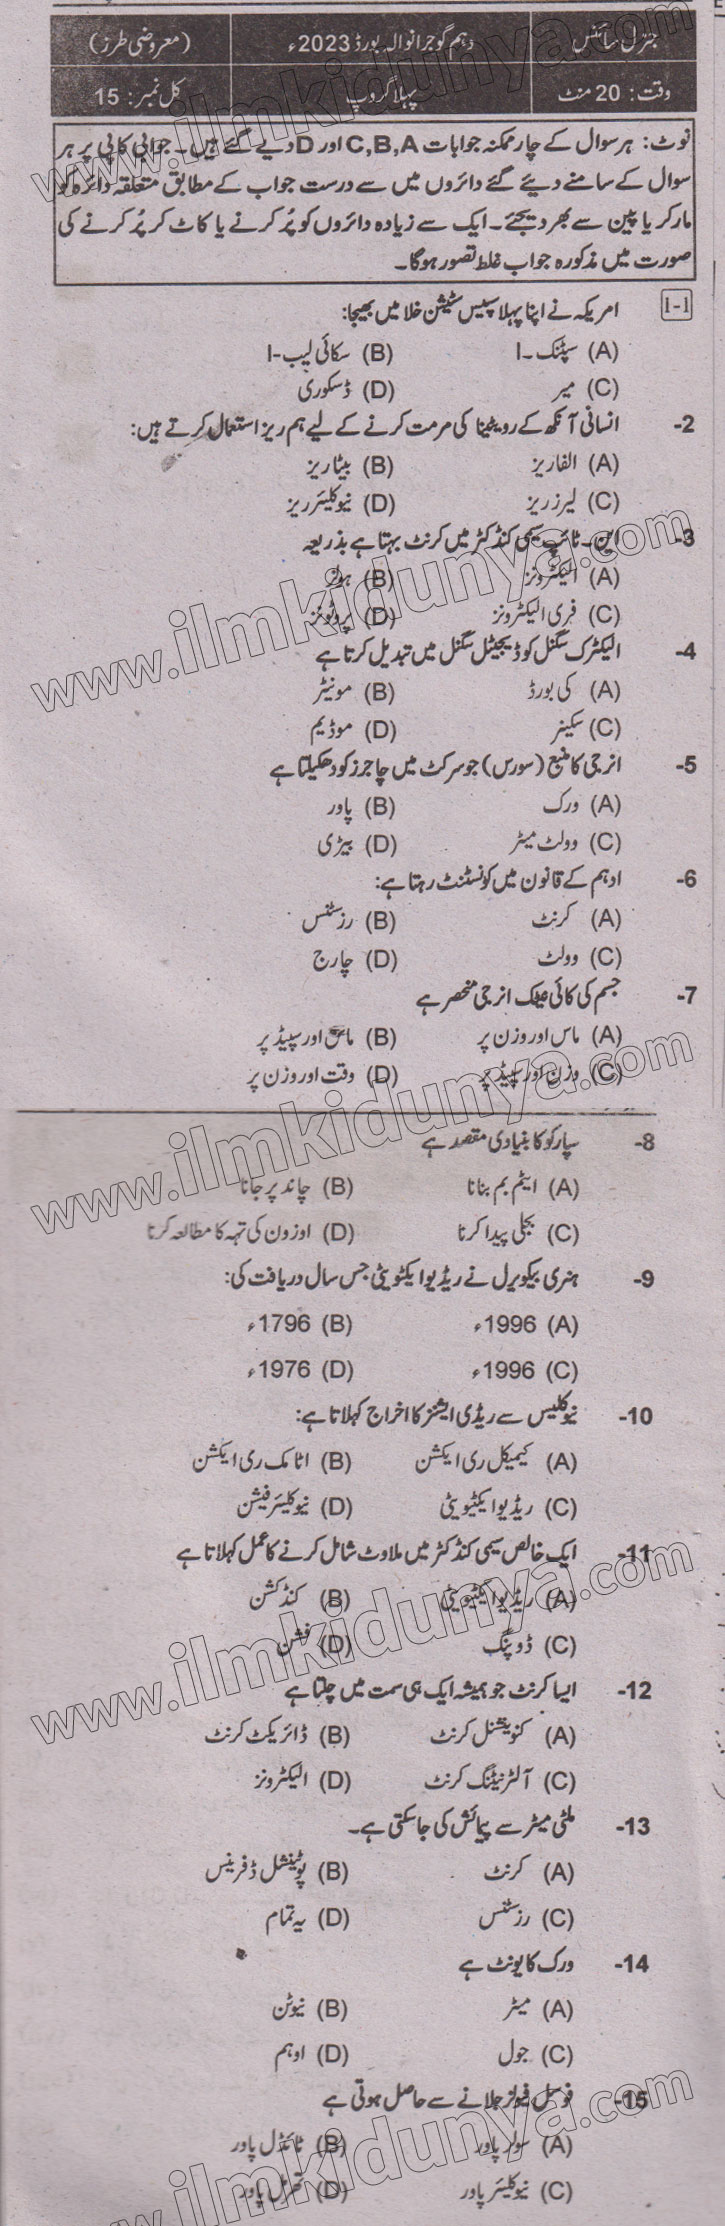 جنرل سائنس دہم گوجرانوالہ بورڈ 2023ء (معروضی طرز)
وقت: 20 منٹ پہلا گروپ کل نمبر: 15
نوٹ: ہر سوال کے چار ممکنہ جوابات C,B,A اور D دیے گئے ہیں۔ جوابی کاپی پر ہر
سوال کے سامنے دیئے گئے دائروں میں سے درست جواب کے مطابق متعلقہ دائرہ کو
مارکر یا پین سے بھر دیجئے۔ ایک سے زیادہ دائروں کو پُر کرنے یا کاٹ کر پُر کرنے کی
صورت میں مذکورہ جواب غلط تصور ہوگا۔
1-1 امریکہ نے اپنا پہلا سپیس سٹیشن خلا میں بھیجا:
(A) سپٹنک۔I (B) سکائی لیب-I
(C) میر (D) ڈسکوری
2- انسانی آنکھ کے رویٹینا کی مرمت کرنے کے لیے ہم ریز استعمال کرتے ہیں:
(A) الفاریز (B) بیٹاریز
(C) لیزرریز (D) نیوکلیئرریز
3- این۔ٹائپ سیمی کنڈکٹر میں کرنٹ بہتا ہے بذریعہ
(A) الیکٹرونز (B) ہولز
(C) فری الیکٹرونز (D) پروٹونز
4- الیکٹرک سگنل کو ڈیجیٹل سگنل میں تبدیل کرتا ہے
(A) کی بورڈ (B) مونیٹر
(C) سکینر (D) موڈیم
5- انرجی کا منبع (سورس) جو سرکٹ میں چارجز کو دھکیلتا ہے
(A) ورک (B) پاور
(C) وولٹ میٹر (D) بیٹری
6- اوہم کے قانون میں کونسٹنٹ رہتا ہے:
(A) کرنٹ (B) رزسٹنس
(C) وولٹ (D) چارج
7- جسم کی کائی نیٹک انرجی منحصر ہے
(A) ماس اور وزن پر (B) ماس اور سپیڈ پر
(C) وزن اور سپیڈ پر (D) وقت اور وزن پر
8- سپارکو کا بنیادی مقصد ہے
(A) ایٹم بم بنانا (B) چاند پر جانا
(C) بجلی پیدا کرنا (D) اوزون کی تہہ کا مطالعہ کرنا
9- ہنری بیکویرل نے ریڈیو ایکٹویٹی جس سال دریافت کی:
(A) 1996ء (B) 1796ء
(C) 1996ء (D) 1976ء
10- نیوکلیس سے ریڈی ایشنز کا اخراج کہلاتا ہے:
(A) کیمیکل ری ایکشن (B) اٹامک ری ایکشن
(C) ریڈیو ایکٹیویٹی (D) نیوکلیئر فیشن
11- ایک خالص سیمی کنڈکٹر میں ملاوٹ شامل کرنے کا عمل کہلاتا ہے
(A) ریڈیو ایکٹیویٹی (B) کنڈکشن
(C) ڈوپنگ (D) فشن
12- ایسا کرنٹ جو ہمیشہ ایک ہی سمت میں چلتا ہے
(A) کنویشنل کرنٹ (B) ڈائریکٹ کرنٹ
(C) آلٹرنیٹنگ کرنٹ (D) الیکٹرونز
13- ملٹی میٹر سے پیمائش کی جاسکتی ہے۔
(A) کرنٹ (B) پوٹینشل ڈفرینس
(C) رزسٹنس (D) یہ تمام
14- ورک کا یونٹ ہے
(A) میٹر (B) نیوٹن
(C) جول (D) اوہم
15- فوسل فیولز جلانے سے حاصل ہوتی ہے
(A) سولر پاور (B) ٹائڈل پاور
(C) نیوکلیئر پاور (D) تھرمل پاور
www.ilmkidunya.com
www.ilmkidunya.com
www.ilmkidunya.com
www.ilmkidunya.com
www.ilmkidunya.com